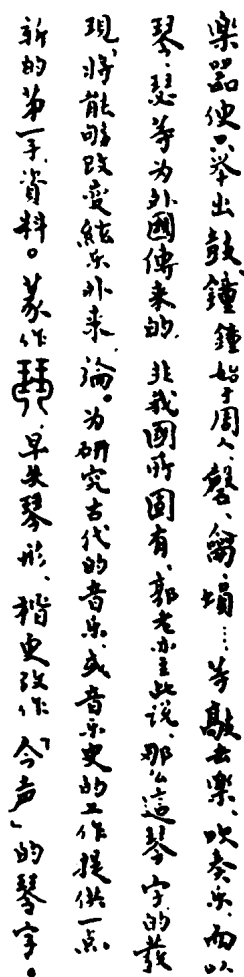 樂器便只举出鼓、鐘鐘始于周人、磬、籥、塤……等敲击樂、吹奏乐、而以
琴、瑟等为外國傳来的、非我國所固有、郭老亦主此说、那么這琴字的發
現、将能够改变絃乐外来論。为研究古代的音乐、或音乐史的工作提供一点
新的第一手資料。篆作、早失琴形、楷更改作「今声」的琴字。